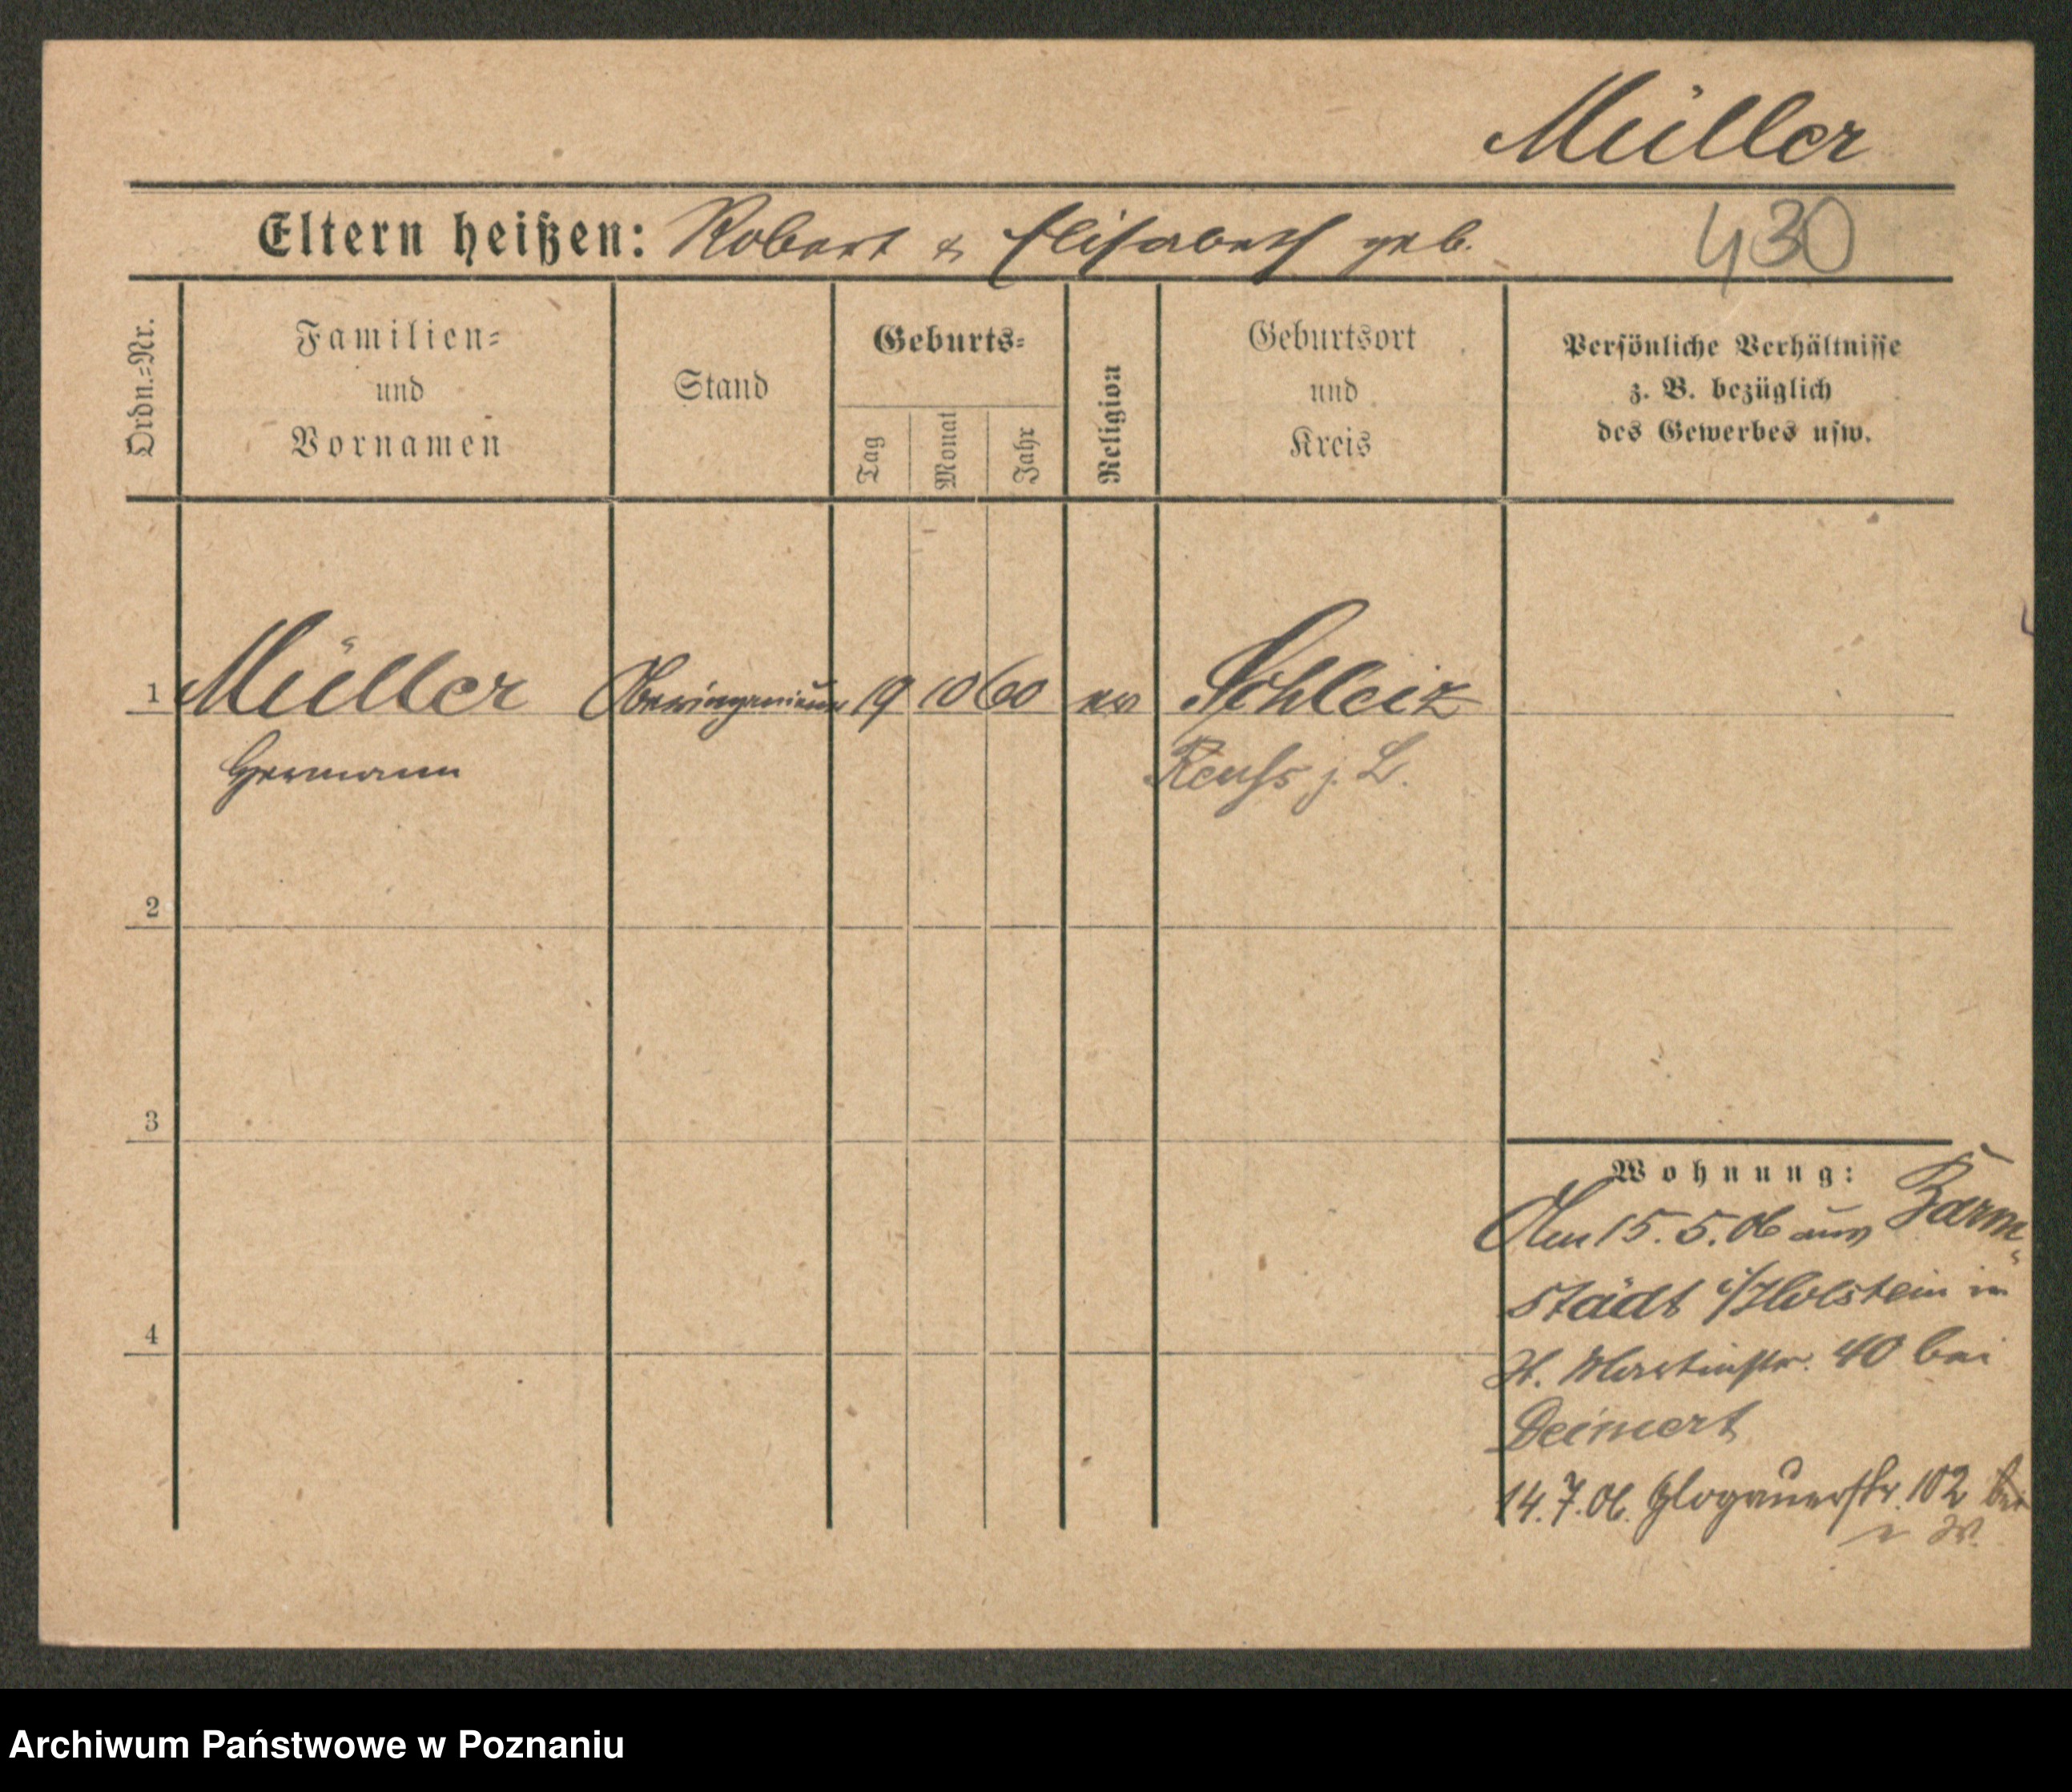 Müller
Eltern heißen: Robert & Elisabeth geb.
430
Ordn.-Nr.
Familien-
und
Vornamen
Stand
Geburts-
Tag
Monat
Jahr
Religion
Geburtsort
und
Kreis
Persönliche Verhältnisse
z. B. bezüglich
des Gewerbes usw.
1 Müller Oberingenieur 19 10 60 ev Schleiz
Hermann Reuss j. L.
2
3
4
Wohnung:
Am 15. 5. 06 aus Barm-
städt i/Holstein in
St. Martinstr. 40 bei
Deinert
14. 7. 06. Glogauerstr. 102 bei
W.
Archiwum Państwowe w Poznaniu